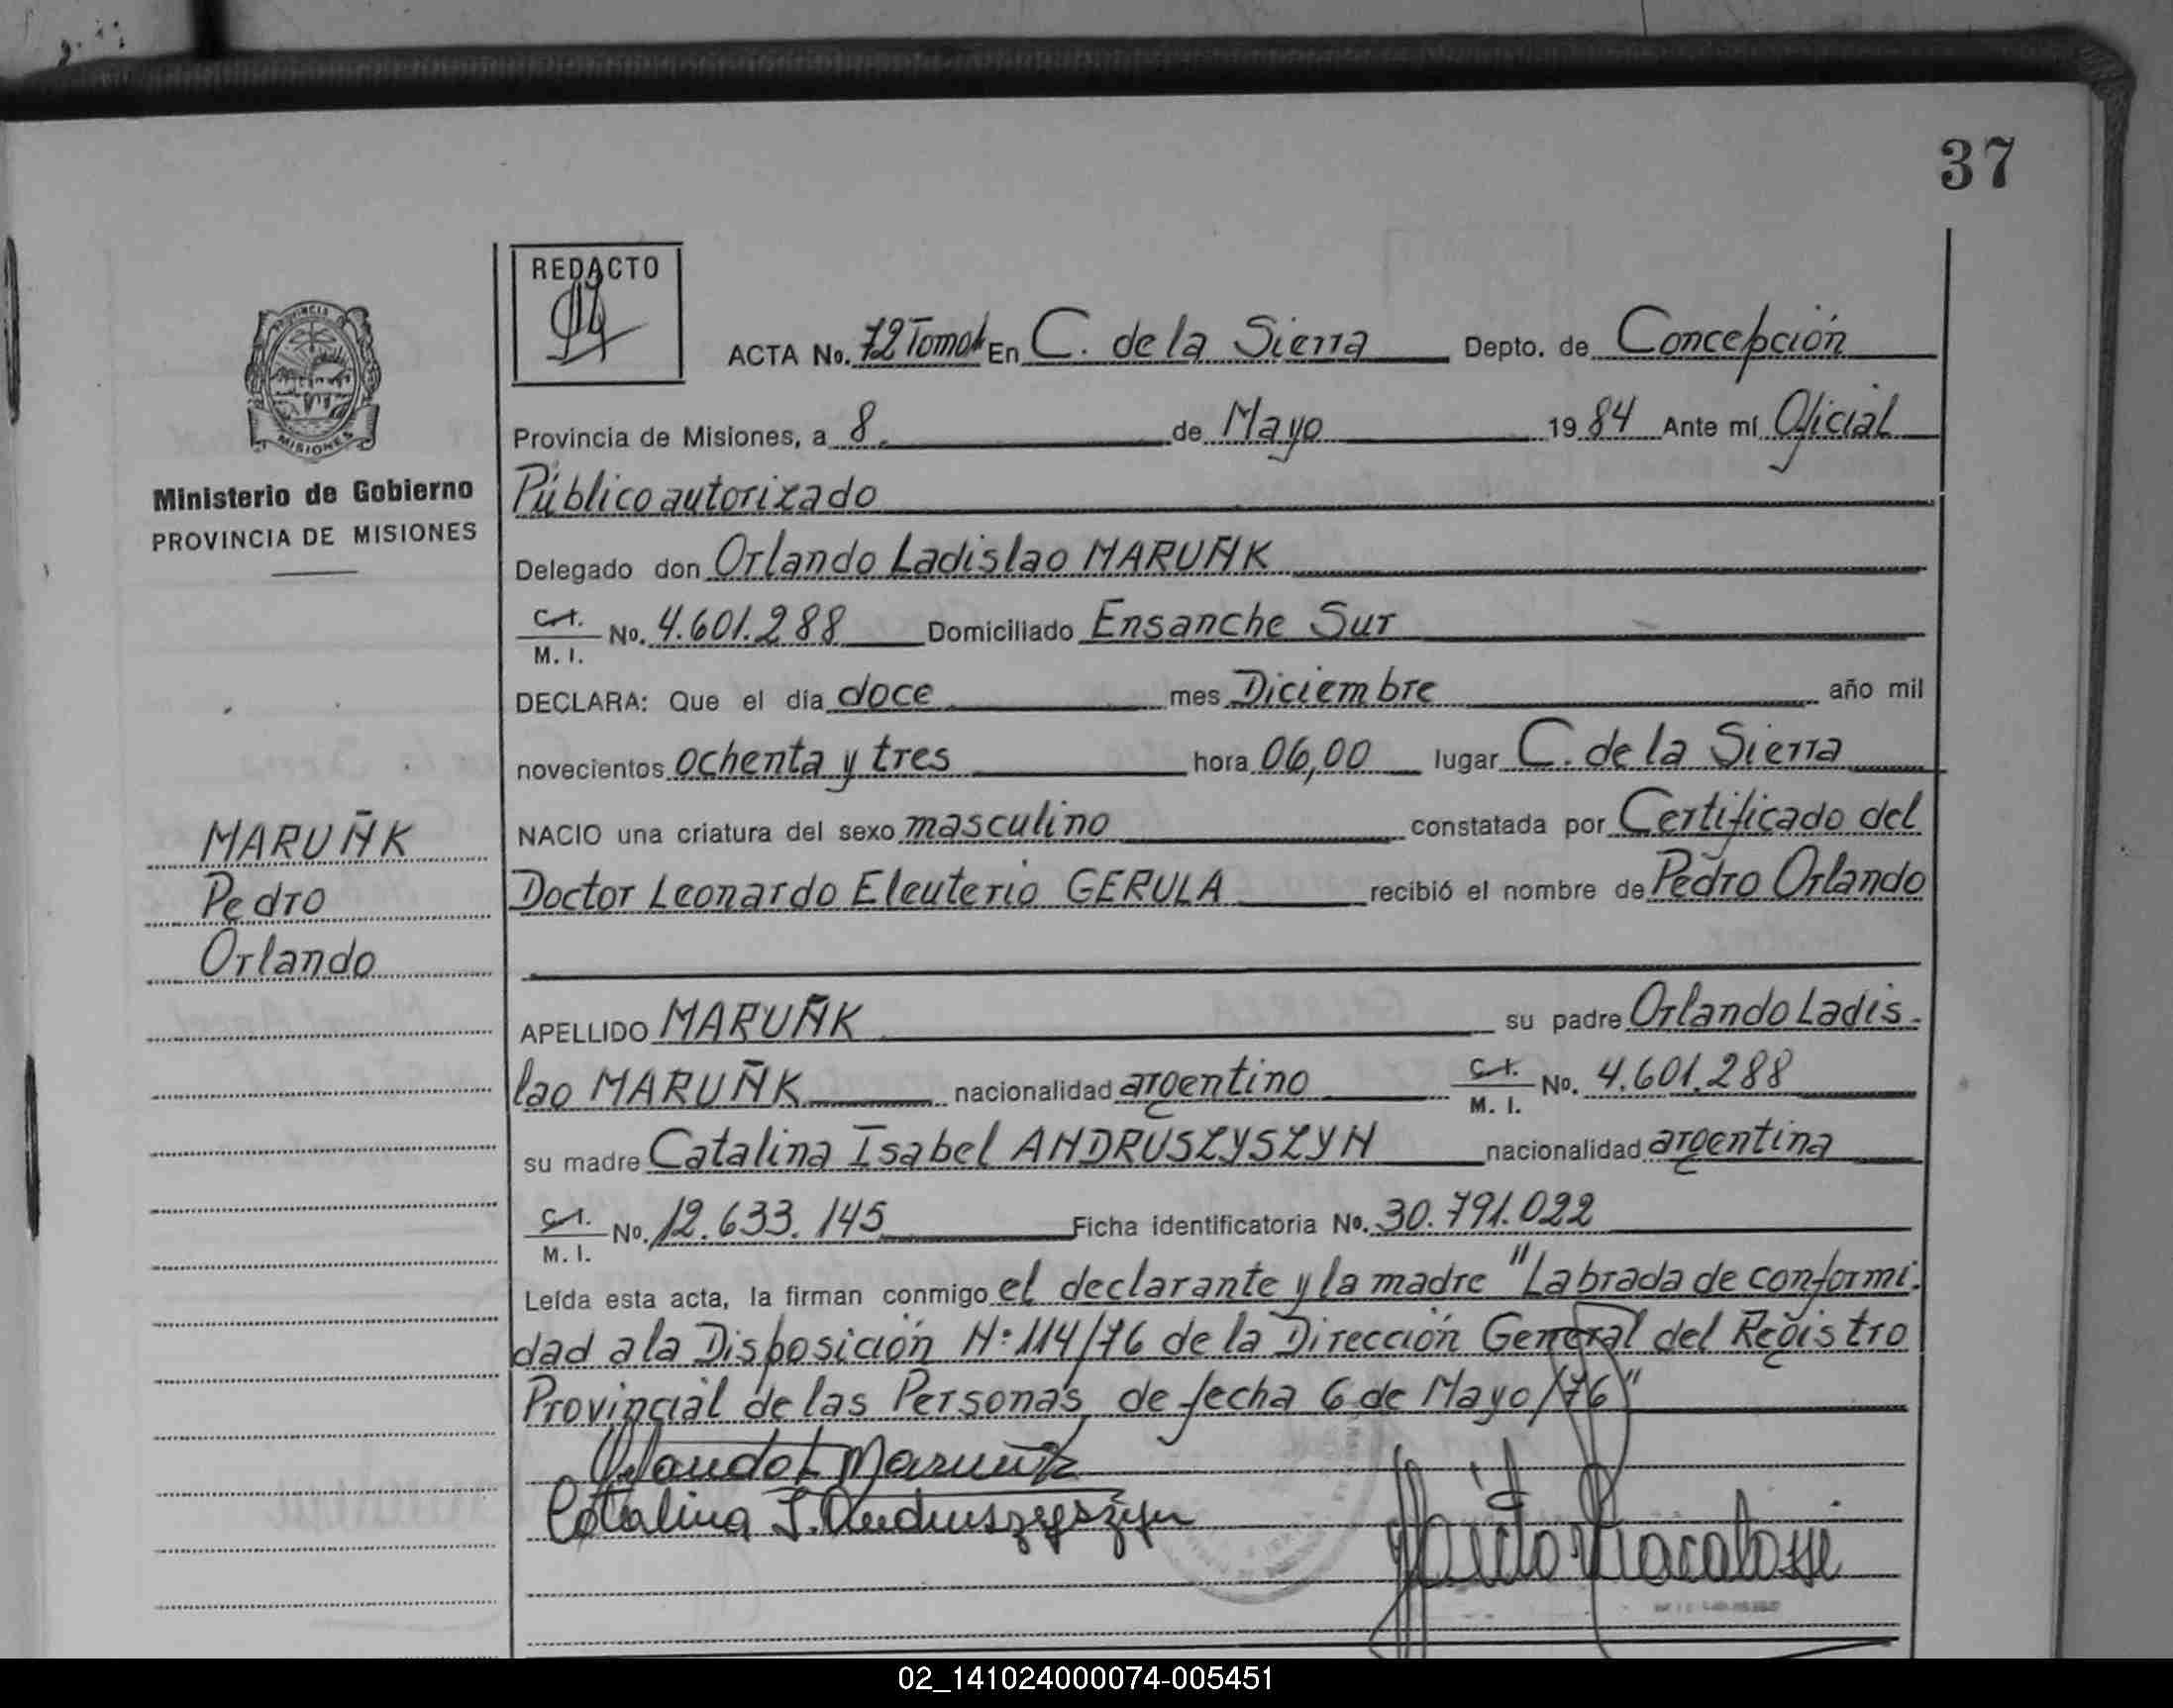 37
REDACTO
ACTA No. 72 Tomo I En C. de la Sierra Depto. de Concepción
Provincia de Misiones, a 8 de Mayo 1984 Ante mí Oficial
Público autorizado
Delegado don Orlando Ladislao MARUÑK
C.I. / M. I. No. 4.601.288 Domiciliado Ensanche Sur
DECLARA: Que el día doce mes Diciembre año mil
novecientos ochenta y tres hora 06,00 lugar C. de la Sierra
NACIO una criatura del sexo masculino constatada por Certificado del
Doctor Leonardo Eleuterio GERULA recibió el nombre de Pedro Orlando
APELLIDO MARUÑK su padre Orlando Ladis-
lao MARUÑK nacionalidad argentino C.I. / M. I. No. 4.601.288
su madre Catalina Isabel ANDRUSZYSZYN nacionalidad argentina
C.I. / M. I. No. 12.633.145 Ficha identificatoria No. 30.791.022
Leída esta acta, la firman conmigo el declarante y la madre "Labrada de conformi-
dad a la Disposición N: 114/76 de la Dirección General del Registro
Provincial de las Personas de fecha 6 de Mayo/76"
Orlando L Maruñk
Catalina I. Andruszyszyn
PROVINCIA DE
MISIONES
Ministerio de Gobierno
PROVINCIA DE MISIONES
MARUÑK
Pedro
Orlando
02_141024000074-005451